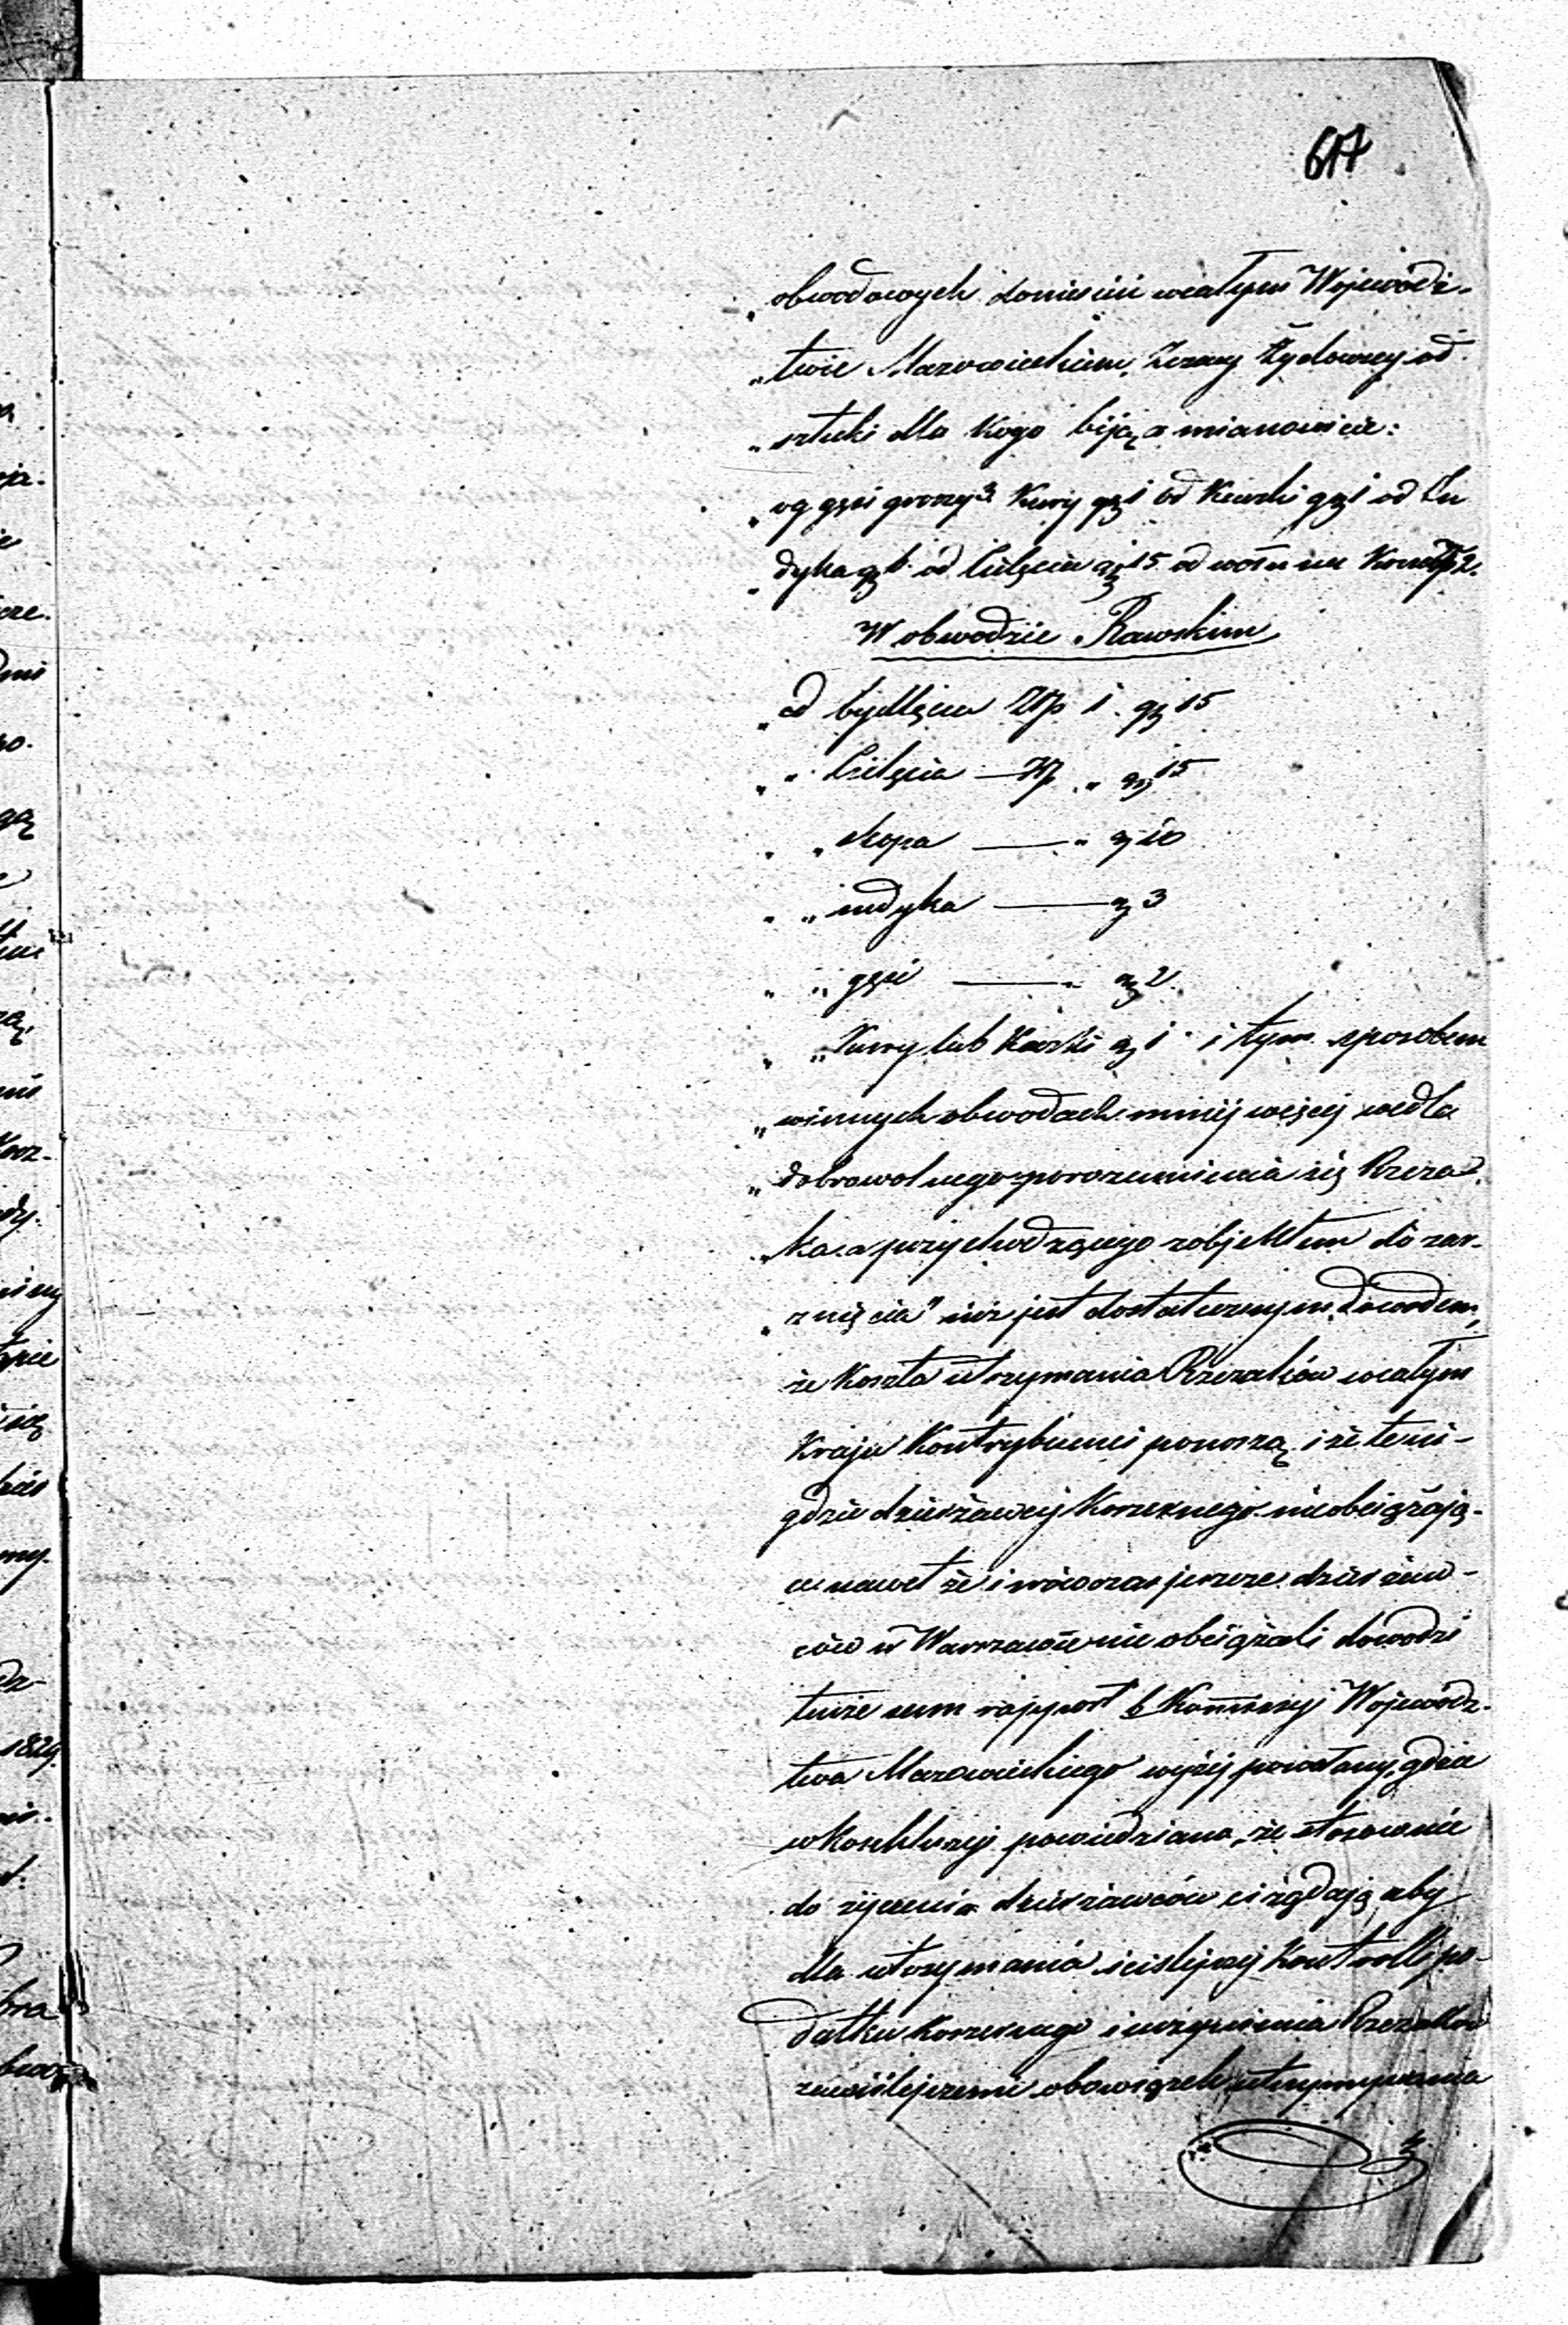 617
„obwodowych doniesień wcałym Wojewódz-
„twie Mazowieckiem, Rzezacy Żydowscy od
„sztuki dla kogo biją, a mianowicie:
„og gęsi groszy 3 Kury gr 1 od Kaczki gr 1 od In
„dyka gr 6 od Cielęcia gr 15 od wołu lub Krowy Złp 2.
W obwodzie Rawskim
„od bydlęcia Złp 1. gr 15
„ „ Cielęcia — Złp „ gr 15
„ „ skopa — „ gr 10
„ „ indyka — gr 3
„ „ gęsi — „ gr 2
„ „ Kury lub Kaczki gr 1 i tym sposobem
„winnych obwodach mniej więcej wedle
„dobrowolnego porozumienia się Rzeza-
„ka a przychodzącego zobjektem do zar-
„znięcia" już jest dostatecznym dowodem,
że Koszta utrzymania Rzezaków wcałym
Kraju Kontrybuenci ponoszą i że te ni-
gdzie dzierżawcy Koszernego nieobciążają-
ce nawet że i wówczas jeszcze dzierżaw-
ców w Warszawie nie obciążali dowodzi
tenże sam rapport b. Kommissyi Wojewódz-
twa Mazowieckiego wyżej powołany, gdzie
w Konkluzyi powiedziano, że stosownie
do życzenia dzierżawców ci żądają aby
dla utrzymania ściślejszej Kontrolli po-
datku Koszernego i uczynienia Rzezaków
zawiślejszemi obowiązek utrzymywania